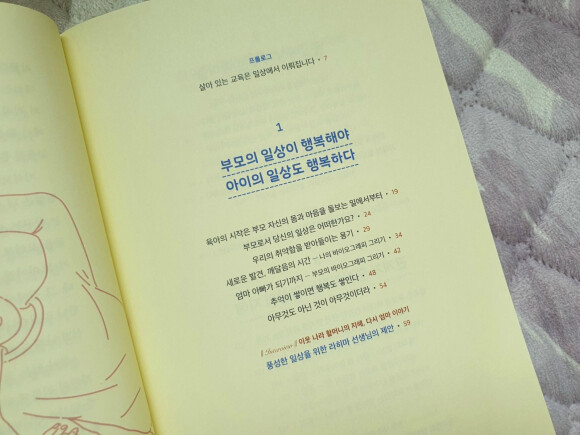 프롤로그
살아 있는 교육은 일상에서 이뤄집니다 • 7
1
부모의 일상이 행복해야
아이의 일상도 행복하다
육아의 시작은 부모 자신의 몸과 마음을 돌보는 일에서부터 • 19
부모로서 당신의 일상은 어떠한가요? • 24
우리의 취약함을 받아들이는 용기 • 29
새로운 발견, 깨달음의 시간 — 나의 바이오그래피 그리기 • 34
엄마 아빠가 되기까지 — 부모의 바이오그래피 그리기 • 42
추억이 쌓이면 행복도 쌓인다 • 48
아무것도 아닌 것이 아무것이더라 • 54
이웃 나라 할머니의 지혜, 다시 엄마 이야기
풍성한 일상을 위한 라히마 선생님의 제안 • 59